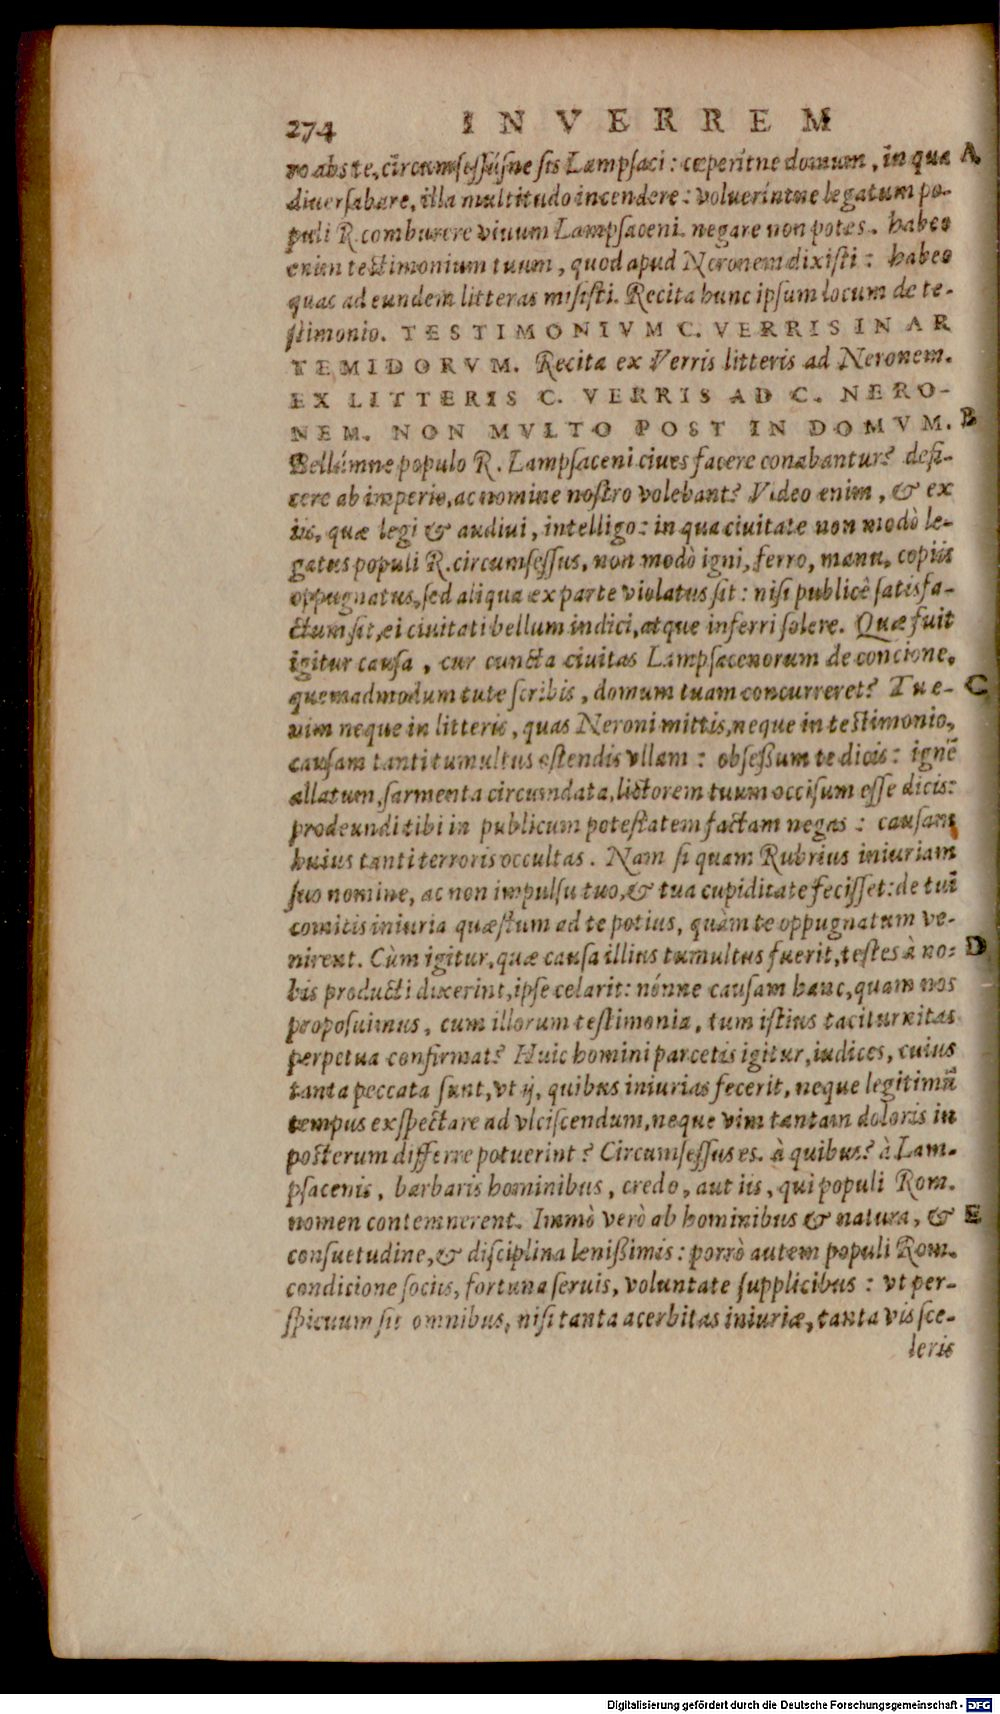 274 IN VERREM
ro abs te, circumsessúsne sis Lampsaci: cœperítne domum, in qua A
diuersabare, illa multitudo incendere: voluerintne legatum po-
puli R. comburere viuum Lampsaceni. negare non potes. habeo
enim testimonium tuum, quod apud Neronem dixisti: habeo
quas ad eundem litteras misisti. Recita hunc ipsum locum de te-
stimonio. TESTIMONIVM C. VERRIS IN AR
TEMIDORVM. Recita ex Verris litteris ad Neronem.
EX LITTERIS C. VERRIS AD C. NERO-
NEM. NON MVLTO POST IN DOMVM. B
Bellúmne populo R. Lampsaceni ciues facere conabantur? defi-
cere ab imperio, ac nomine nostro volebant? Video enim, & ex
iis, quæ legi & audiui, intelligo: in qua ciuitate non modò le-
gatus populi R. circumsessus, non modò igni, ferro, manu, copiis
oppugnatus, sed aliqua ex parte violatus sit: nisi publicè satisfa-
ctum sit, ei ciuitati bellum indici, atque inferri solere. Quæ fuit
igitur causa, cur cuncta ciuitas Lampsacenorum de concione,
quemadmodum tute scribis, domum tuam concurreret? Tu e- C
nim neque in litteris, quas Neroni mittis, neque in testimonio,
causam tanti tumultus ostendis vllam: obseßum te dicis: ignē
allatum, sarmenta circumdata, lictorem tuum occisum esse dicis:
prodeundi tibi in publicum potestatem factam negas: causam
huius tanti terroris occultas. Nam si quam Rubrius iniuriam
suo nomine, ac non impulsu tuo, & tua cupiditate fecisset: de tui
comitis iniuria quæstum ad te potius, quàm te oppugnatum ve-
nirent. Cùm igitur, quæ causa illius tumultus fuerit, testes à no- D
bis producti dixerint, ipse celarit: nónne causam hanc, quam nos
proposuimus, cum illorum testimonia, tum istius taciturnitas
perpetua confirmat? Huic homini parcetis igitur, iudices, cuius
tanta peccata sunt, vt ij, quibus iniurias fecerit, neque legitimū
tempus exspectare ad vlciscendum, neque vim tantam doloris in
posterum differre potuerint? Circumsessus es. à quibus? à Lam-
psacenis, barbaris hominibus, credo, aut iis, qui populi Rom.
nomen contemnerent. Immò verò ab hominibus & natura, & E
consuetudine, & disciplina lenißimis: porrò autem populi Rom.
condicione sociis, fortuna seruis, voluntate supplicibus: vt per-
spicuum sit omnibus, nisi tanta acerbitas iniuriæ, tanta vis sce-
leris
Digitalisierung gefördert durch die Deutsche Forschungsgemeinschaft - DFG